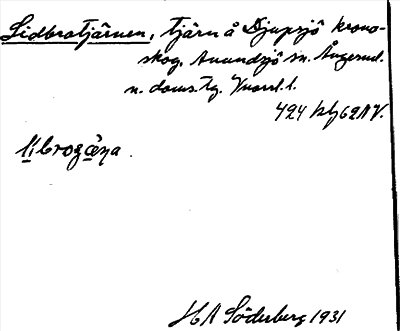 Lidbrotjärnen, tjärn å Djupsjö krono-
skog, Anundsjö sn. Ångerml.
n. doms.tg. Vnorrl. l.
424 bbj62AV.
librogæṇa.
HA Söderberg 1931